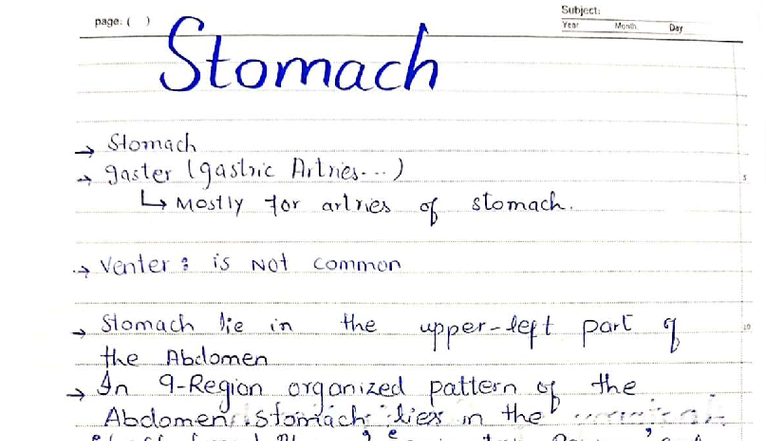 page: ( )
Subject:
Year Month Day
Stomach
→ Stomach
→ gaster (gastric Artries...)
↳ Mostly for artries of stomach.
5
→ Venter : is Not common
→ Stomach lie in the upper-left part of
10
the Abdomen
→ In 9-Region organized pattern of the
Abdomen, stomach lies in the